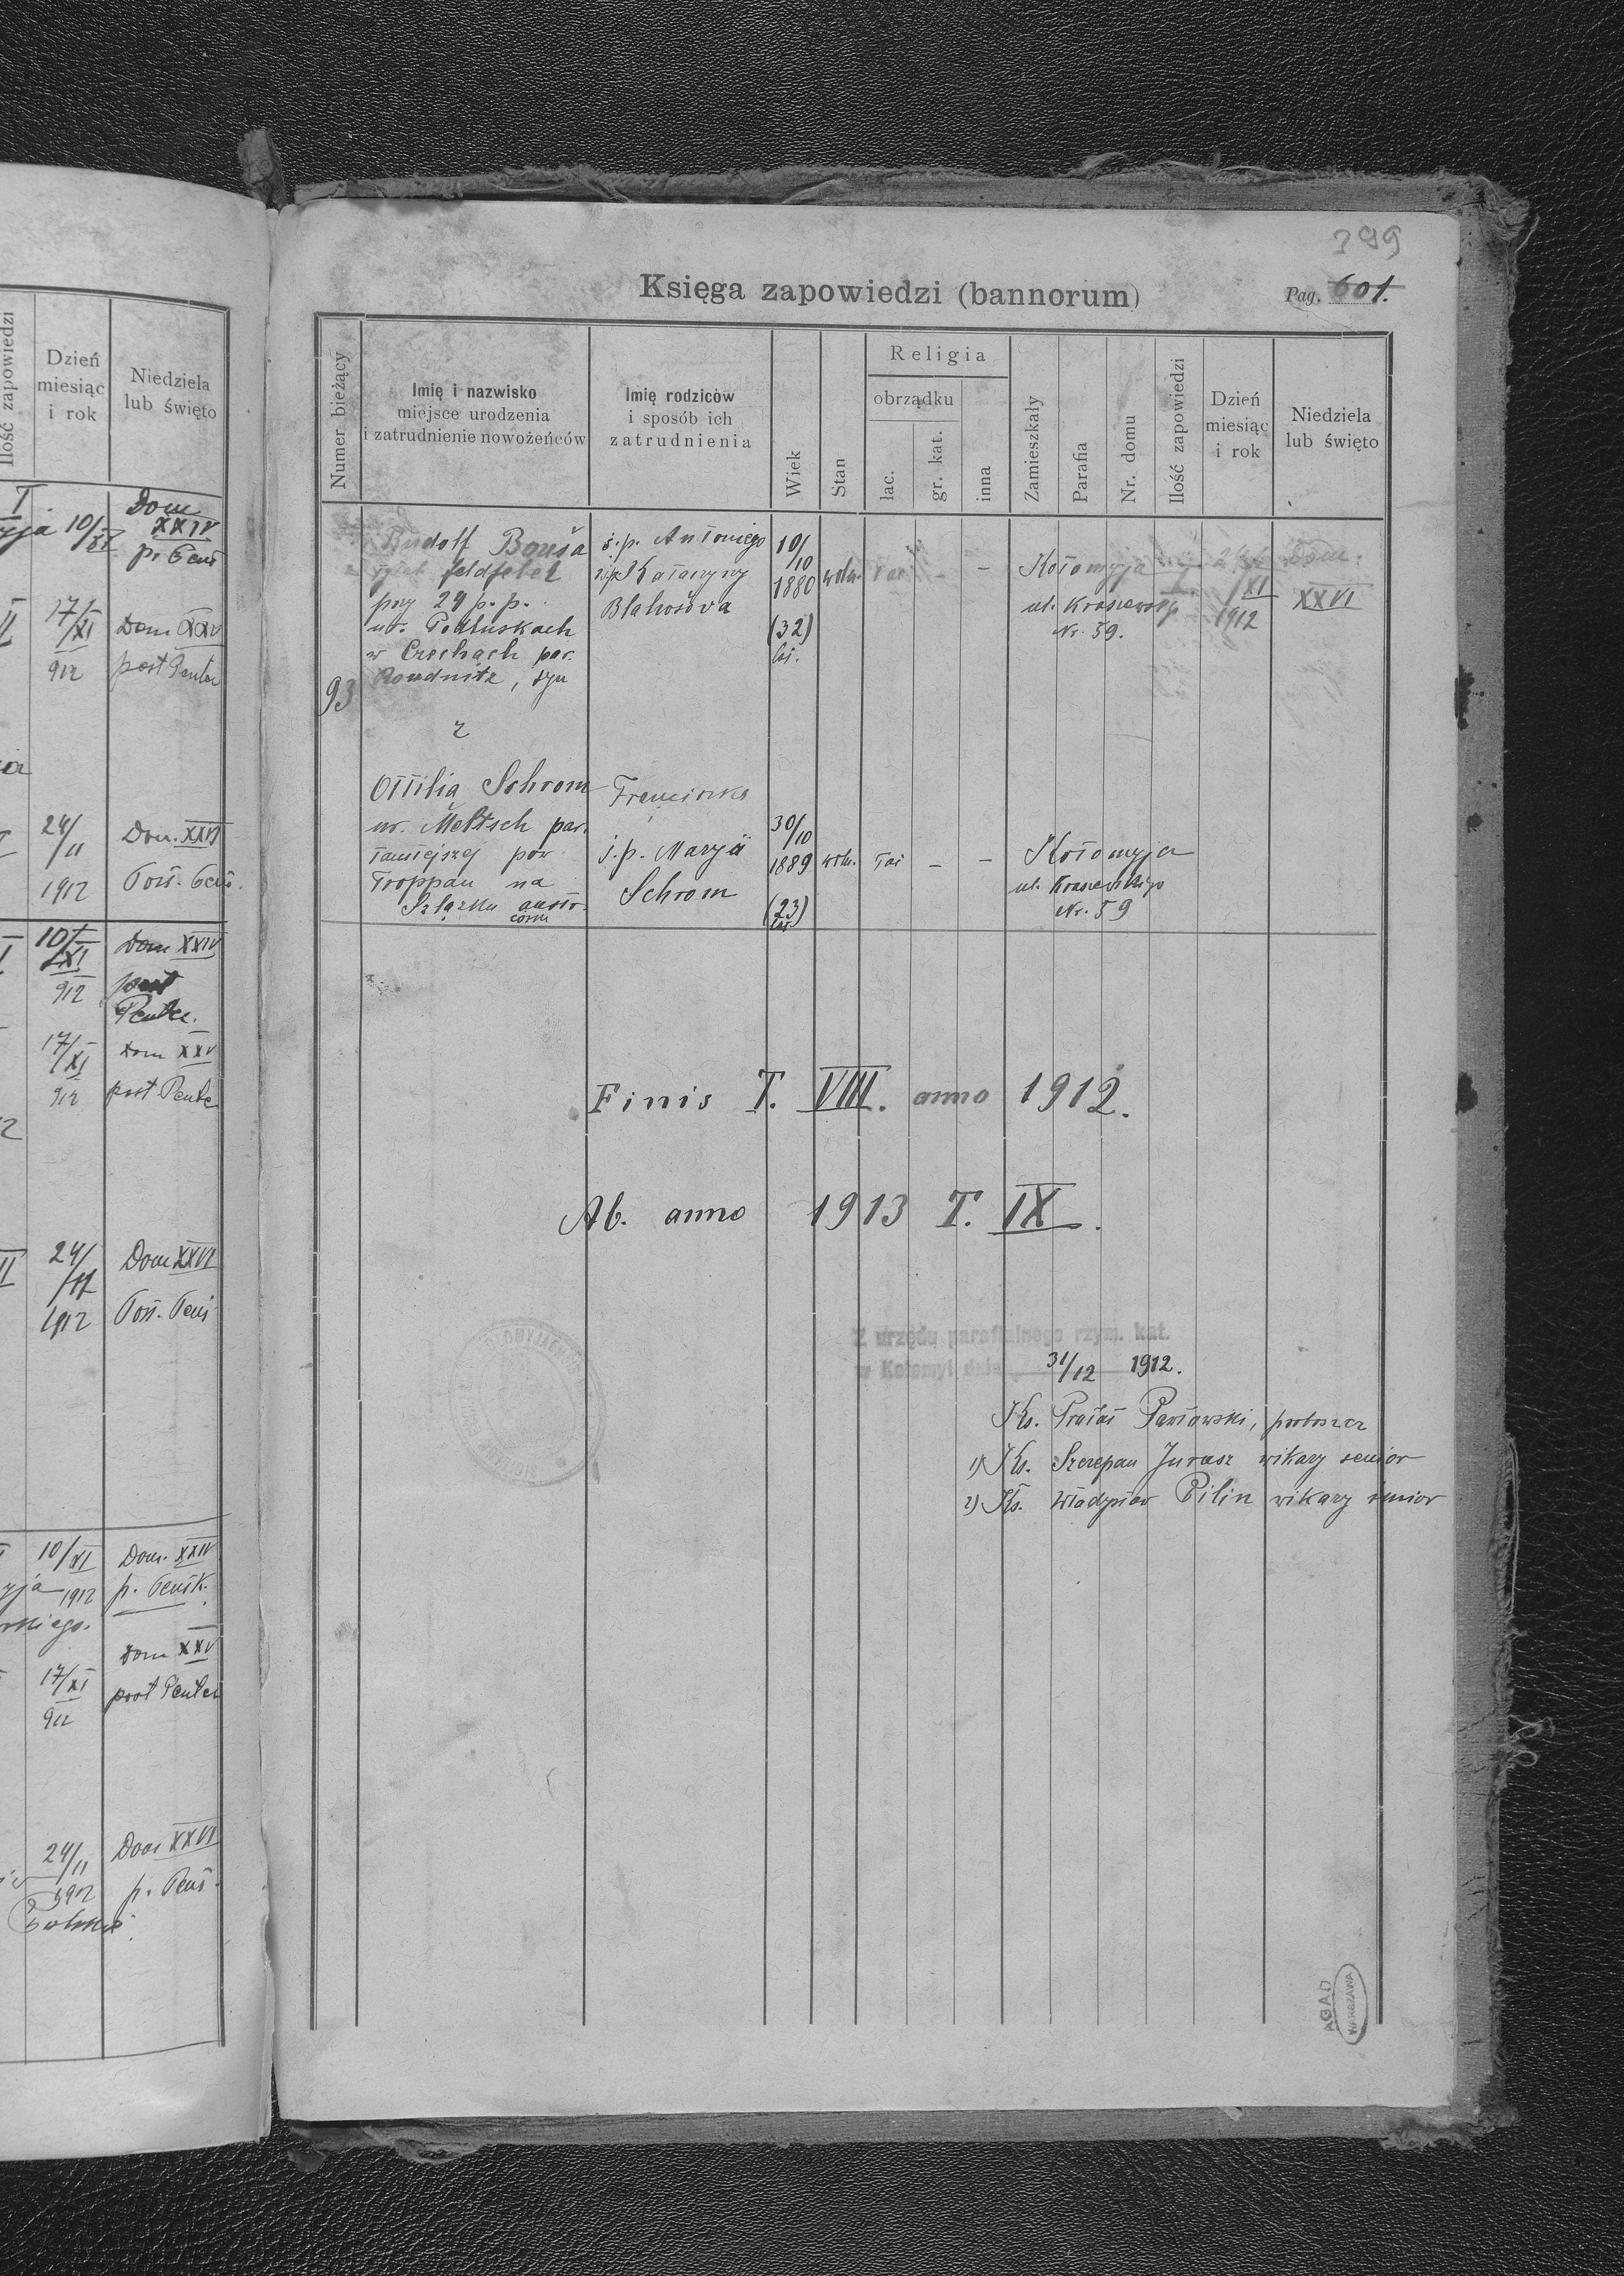 Ilość zapowiedzi
Dzień
miesiąc
i rok
Niedziela
lub święto
I
10/XI
Dom
XXIV
II
17/XI
912
Dom XXV
post Pentec
24/11
1912
Dom. XXVI
10/XI
912
Dom XXIV
post
Pentec.
17/XI
912
Dom XXV
post Pentec
II
24/11
1912
Dom XXVI
10/XI
1912
Dom. XXIV
17/XI
912
Dom XXV
post Pentec
24/11
1912
Dom XXVI
399
Księga zapowiedzi (bannorum)
Pag. 601.
Numer bieżący
Imię i nazwisko
miejsce urodzenia
i zatrudnienie nowożeńców
Imię rodziców
i sposób ich
zatrudnienia
Wiek
Stan
Religia
obrządku
łac.
gr. kat.
inna
Zamieszkały
Parafia
Nr. domu
Ilość zapowiedzi
Dzień
miesiąc
i rok
Niedziela
lub święto
93
Rudolf Bouša
feldfebel
przy 24 p. p.
ur. Podluskach
w Czechach par.
Roudnitz, syn
z
ś. p. Antoniego
Katarzyny
Blahošova
10/10
1880
(32)
lat.
woln.
łac
–
–
Kołomyja
ul. Kraszewsk
Nr. 59.
24
/XI
1912
Dom.
XXVI
Ottilia Schrom
ur. Meltsch par.
tamtejszej pow
Troppau na
Szląsku austr.
córka
Franciszka
ś. p. Maryi
Schrom
30/10
1889
(23)
lat
woln.
łac
–
–
Kołomyja
ul. Kraszewskiego
Nr. 59
Finis T. VIII. anno 1912.
Ab. anno 1913 T. IX.
Z urzędu parafialnego rzym. kat.
w Kołomyi dnia 31/12 1912.
Ks. Prałat Pawłowski, proboszcz
1) Ks. Szczepan Jurasz wikary senior
2) Ks. Władysław Pilin wikary junior
AGAD
WARSZAWA